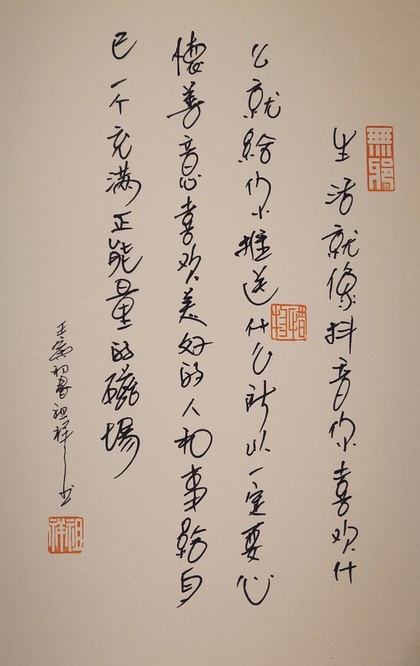 無邪
生活就像抖音你喜欢什
么就給你推送什么所以一定要心
懷善意喜欢美好的人和事給自
己一个充满正能量的磁場
壬寅初春祖祥书
祖祥